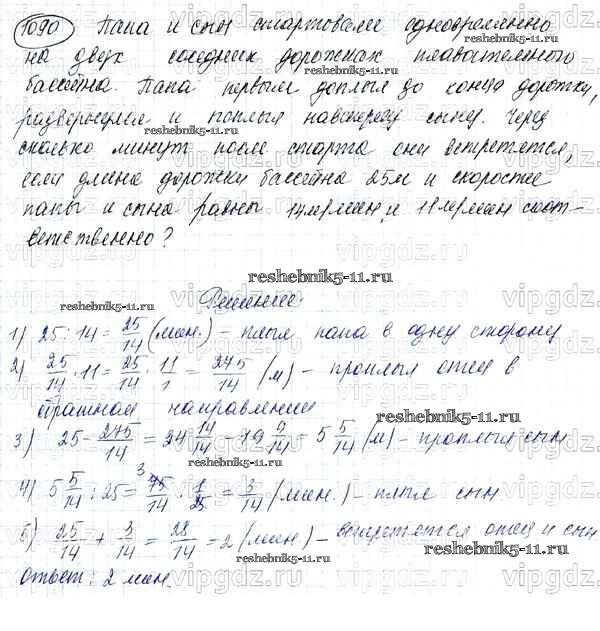 1090 Папа и сын стартовали одновременно
на двух соседних дорожках плавательного
reshebnik5-11.ru
бассейна. Папа первым доплыл до конца дорожки,
развернулся и поплыл навстречу сыну. Через
reshebnik5-11.ru
сколько минут после старта они встретятся,
если длина дорожки бассейна 25м и скорости
папы и сына равны 14м/мин и 11м/мин соот-
ветственно?
reshebnik5-11.ru
Решение
reshebnik5-11.ru
1) 25:14 = 25/14 (мин.) – плыл папа в одну сторону
2) 25/14 · 11 = 25/14 · 11/1 = 275/14 (м) – проплыл отец в
обратном направлении
reshebnik5-11.ru
3) 25 - 275/14 = 24 14/14 - 19 9/14 = 5 5/14 (м) – проплыл сын
reshebnik5-11.ru
4) 5 5/14 : 25 = 75/14 · 1/25 = 3/14 (мин.) – плыл сын
5) 25/14 + 3/14 = 28/14 = 2 (мин) – встретятся отец и сын
reshebnik5-11.ru
ответ: 2 мин.
reshebnik5-11.ru
vipgdz.ru